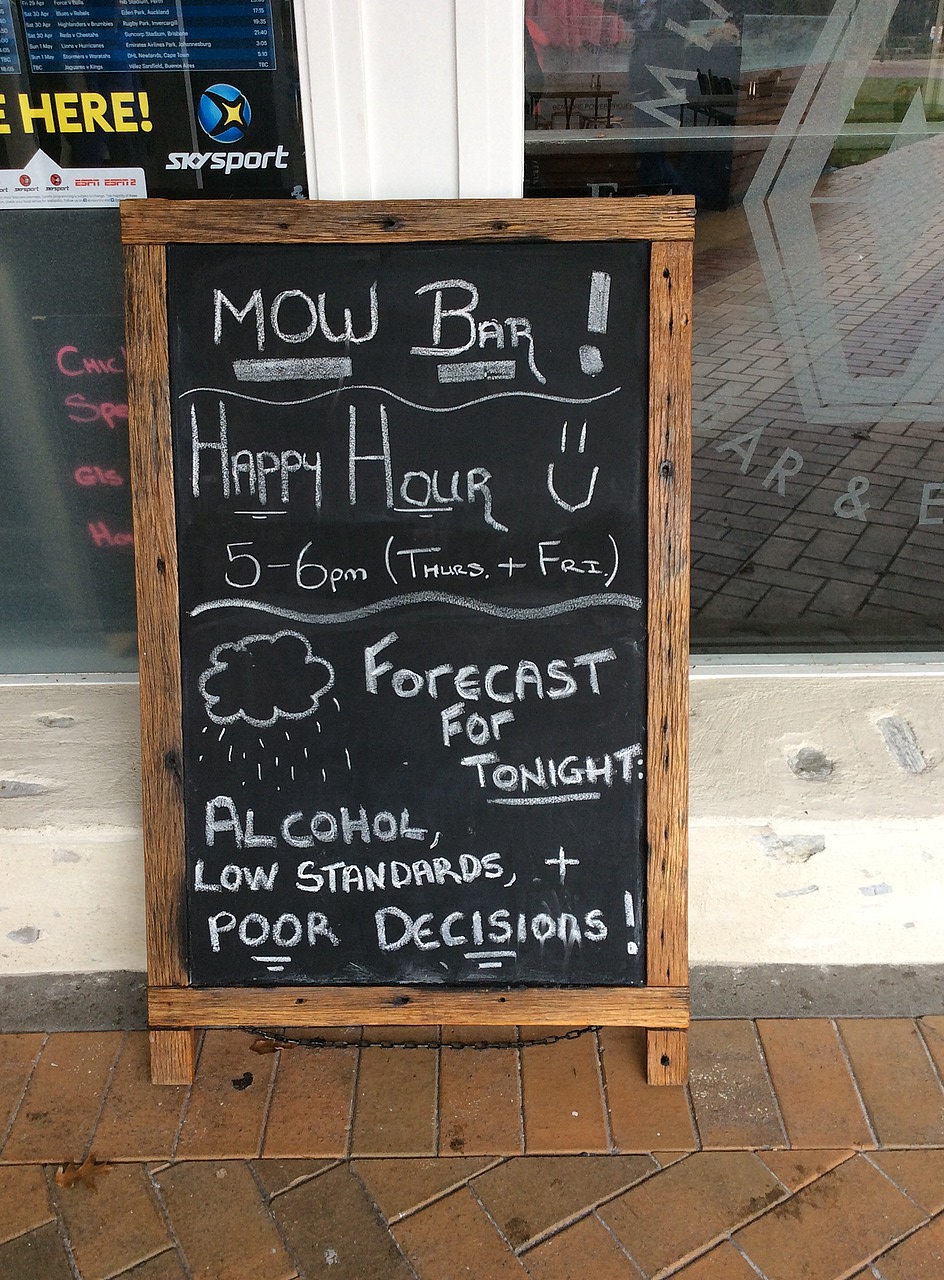 Fri 29 Apr Force v Bulls nib Stadium, Perth
Sat 30 Apr Blues v Rebels Eden Park, Auckland 17:15
Sat 30 Apr Highlanders v Brumbies Rugby Park, Invercargill 19:35
Sat 30 Apr Reds v Cheetahs Suncorp Stadium, Brisbane 21:40
Sun 1 May Lions v Hurricanes Emirates Airlines Park, Johannesburg 3:05
Sun 1 May Stormers v Waratahs DHL Newlands, Cape Town 5:10
TBC Jaguares v Kings Vélez Sarsfield, Buenos Aires TBC
E HERE!
SKY sport
ESPN ESPN 2
MOW BAR!
HAPPY HOUR
5-6pm (THURS. + FRI.)
FORECAST
FOR
TONIGHT:
ALCOHOL,
LOW STANDARDS, +
POOR DECISIONS!
CHIC
Spe
GlS
Ho
BAR & E